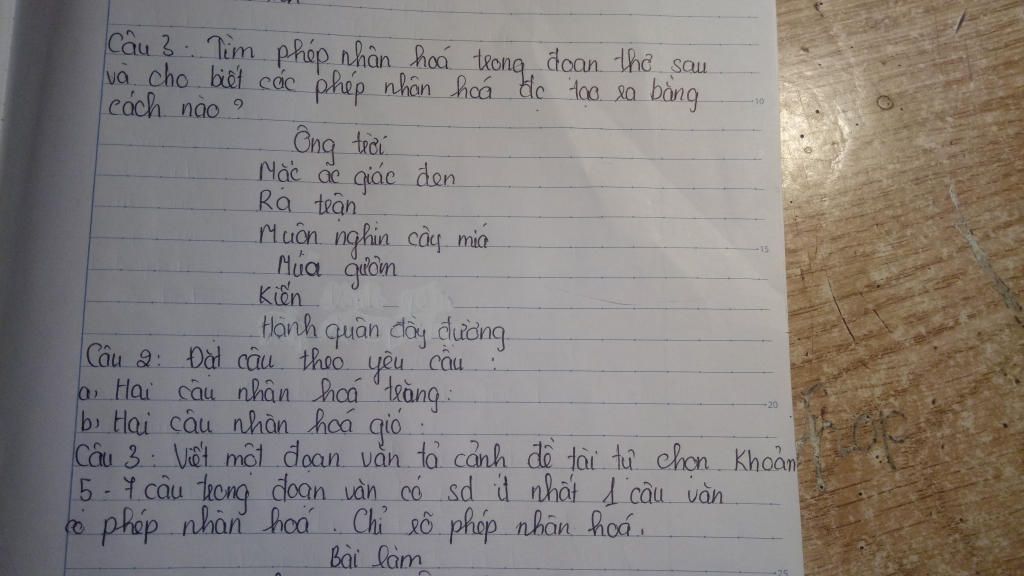 Câu 3: Tìm phép nhân hoá trong đoạn thơ sau
và cho biết các phép nhân hoá đc tạo ra bằng
cách nào?
Ông trời
Mặc áo giáp đen
Ra trận
Muôn nghìn cây mía
Múa gươm
Kiến
Hành quân đầy đường
Câu 2: Đặt câu theo yêu cầu:
a, Hai câu nhân hoá trăng:
b, Hai câu nhân hoá gió.
Câu 3: Viết một đoạn văn tả cảnh đề tài tự chọn khoản
5-7 câu trong đoạn văn có sd ít nhất 1 câu văn
có phép nhân hoá. Chỉ rõ phép nhân hoá.
Bài làm